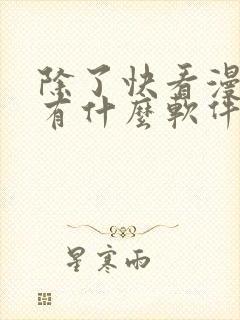 除了快看漫
有什麼軟件
星寒雨